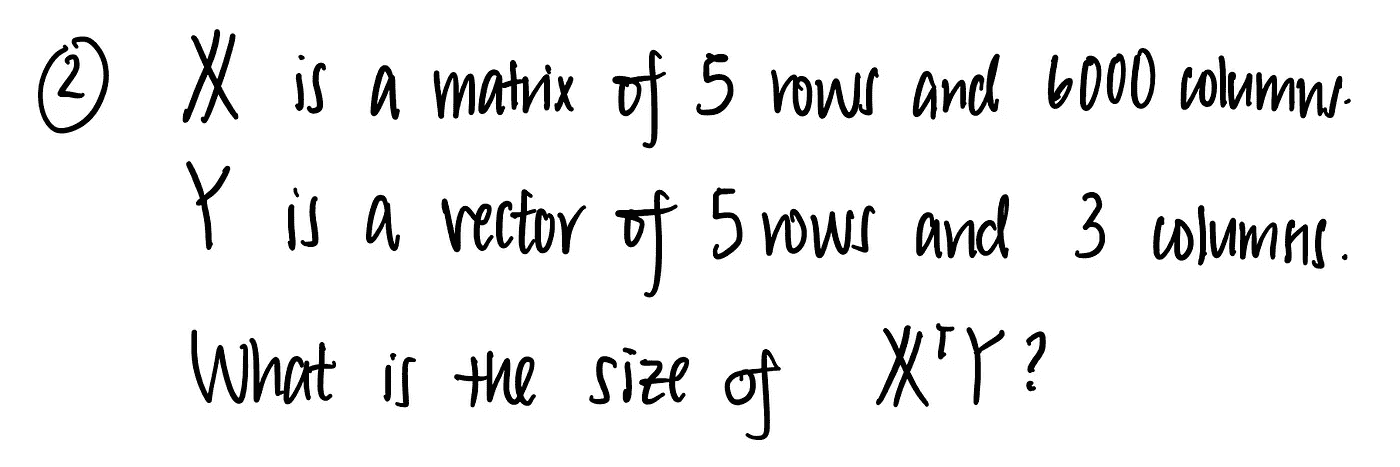 ② 𝕏 is a matrix of 5 rows and 6000 columns.
Y is a vector of 5 rows and 3 columns.
What is the size of 𝕏ᵀY?